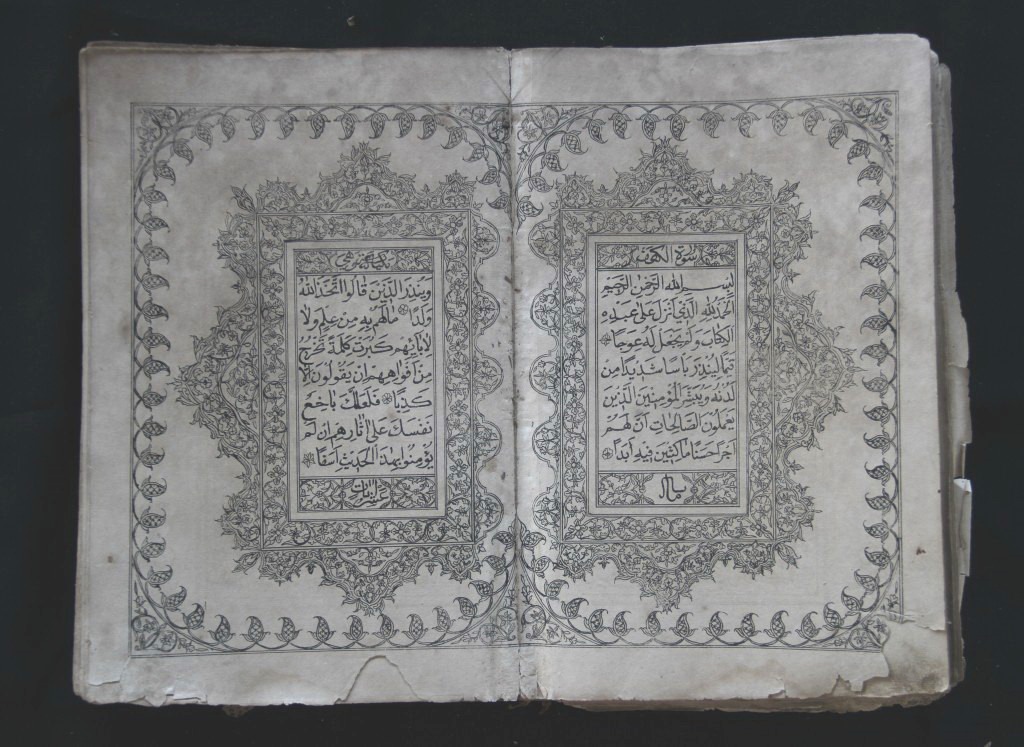 سُورَةُ الكَهْفِ
بِسْمِ اللهِ الرَّحْمٰنِ الرَّحِيْمِ
اَلْحَمْدُ لِلّٰهِ الَّذِيْ اَنْزَلَ عَلٰى عَبْدِهِ
الْكِتَابَ وَلَمْ يَجْعَلْ لَهُ عِوَجًا
قَيِّمًا لِيُنْذِرَ بَأْسًا شَدِيْدًا مِنْ
لَدُنْهُ وَيُبَشِّرَ الْمُؤْمِنِيْنَ الَّذِيْنَ
يَعْمَلُوْنَ الصَّالِحَاتِ اَنَّ لَهُمْ
اَجْرًا حَسَنًا مَاكِثِيْنَ فِيْهِ اَبَدًا
وَيُنْذِرَ الَّذِيْنَ قَالُوا اتَّخَذَ اللهُ
وَلَدًا مَالَهُمْ بِهِ مِنْ عِلْمٍ وَلَا
لِاٰبَائِهِمْ كَبُرَتْ كَلِمَةً تَخْرُجُ
مِنْ اَفْوَاهِهِمْ اِنْ يَقُوْلُوْنَ اِلَّا
كَذِبًا فَلَعَلَّكَ بَاخِعٌ
نَفْسَكَ عَلٰى اٰثَارِهِمْ اِنْ لَمْ
يُؤْمِنُوا بِهٰذَا الْحَدِيْثِ اَسَفًا